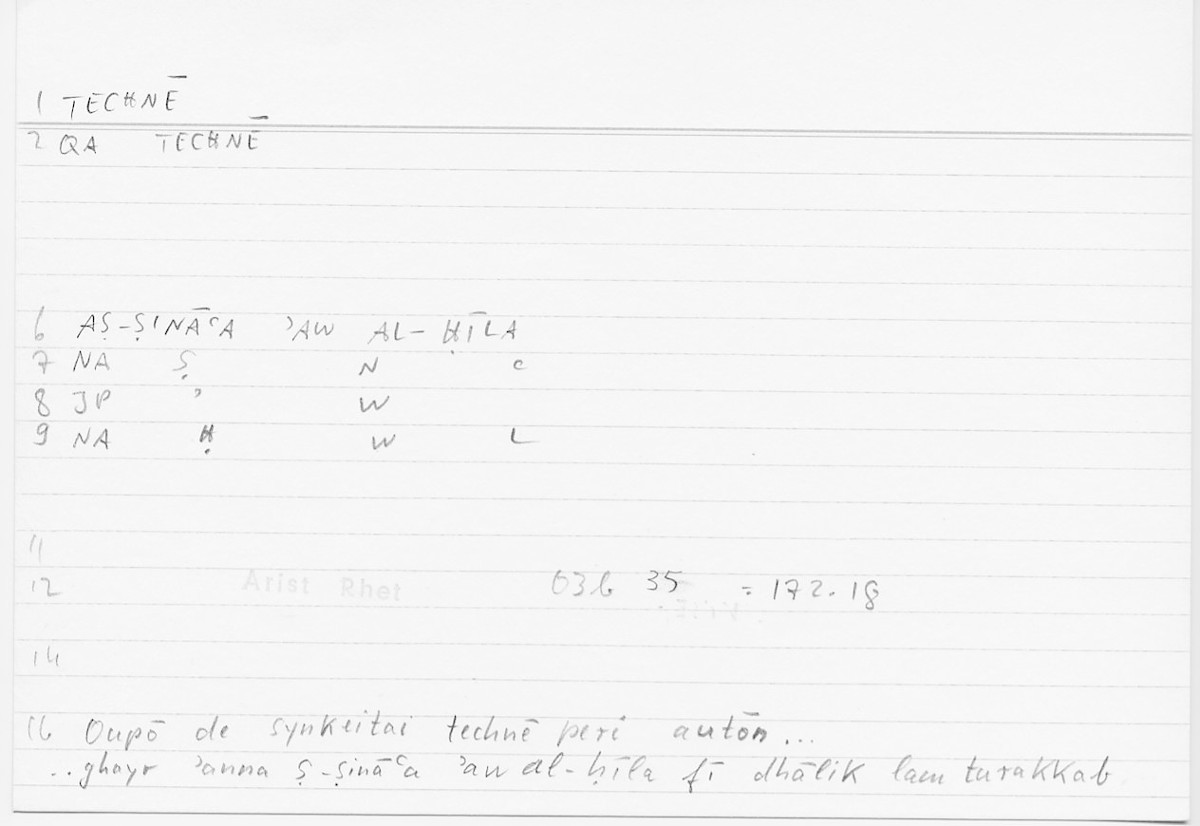 1 TECHNĒ
2 QA TECHNĒ
6 AṢ-ṢINĀʿA ʾAW AL-ḤĪLA
7 NA Ṣ N ʿ
8 JP ʾ W
9 NA Ḥ W L
11
12 Arist Rhet 03b 35 = 172.18
14
16 Oupō de synkeitai technē peri autōn...
..ghayr ʾanna ṣ-ṣināʿa ʾaw al-ḥīla fī dhālik lam turakkab